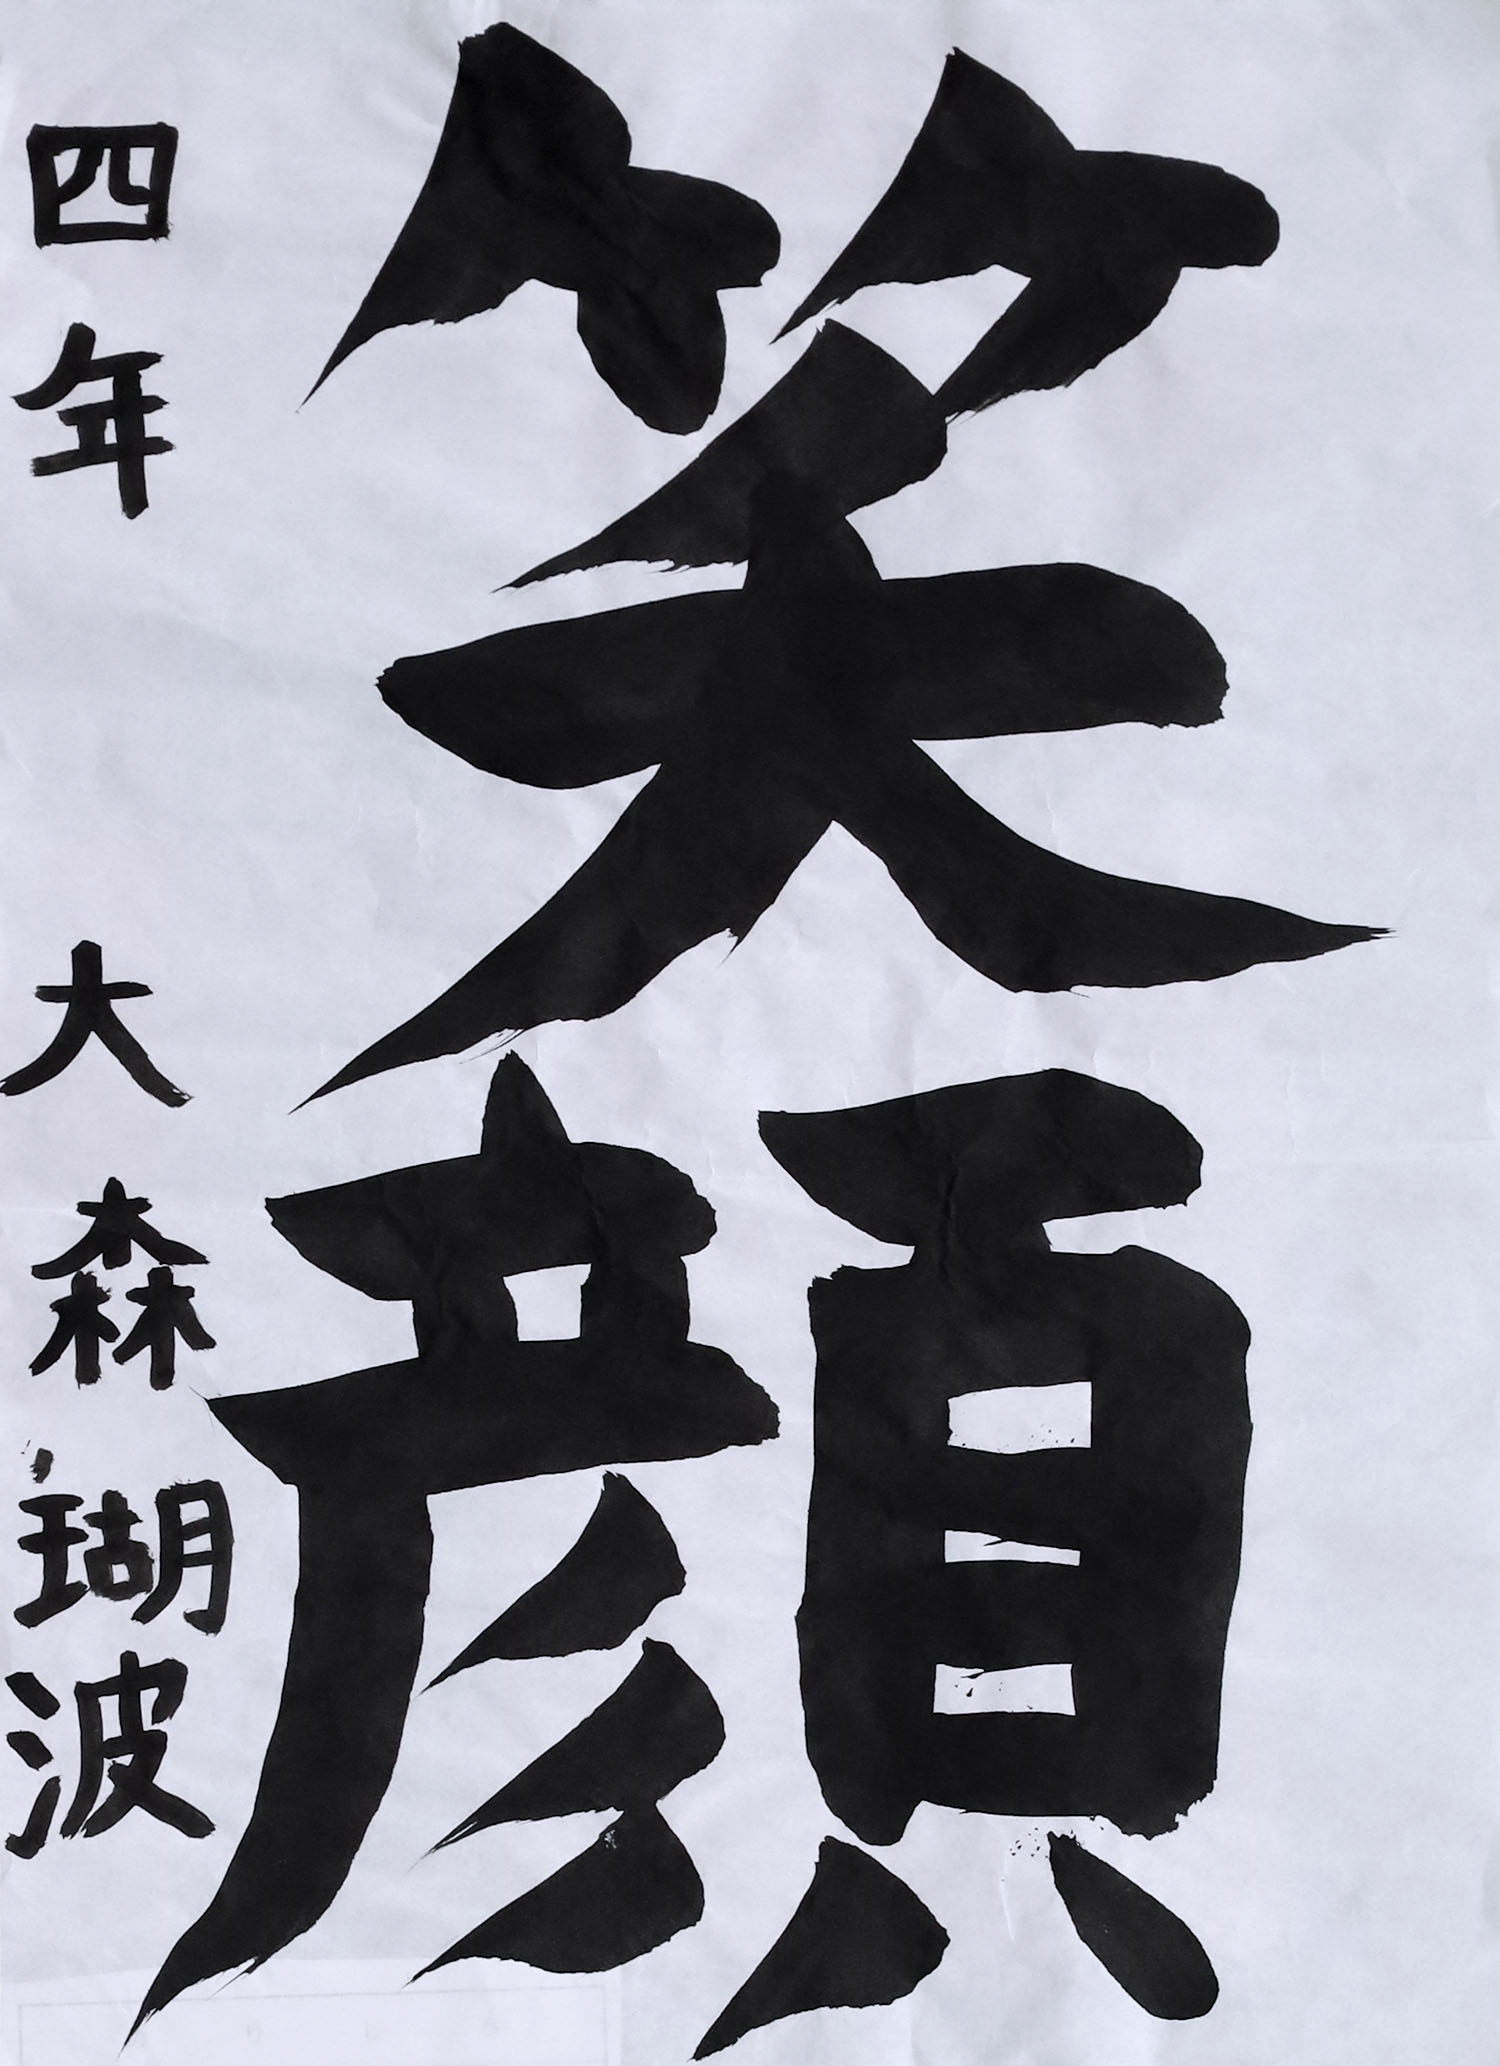 笑顔
四年 大森瑚波